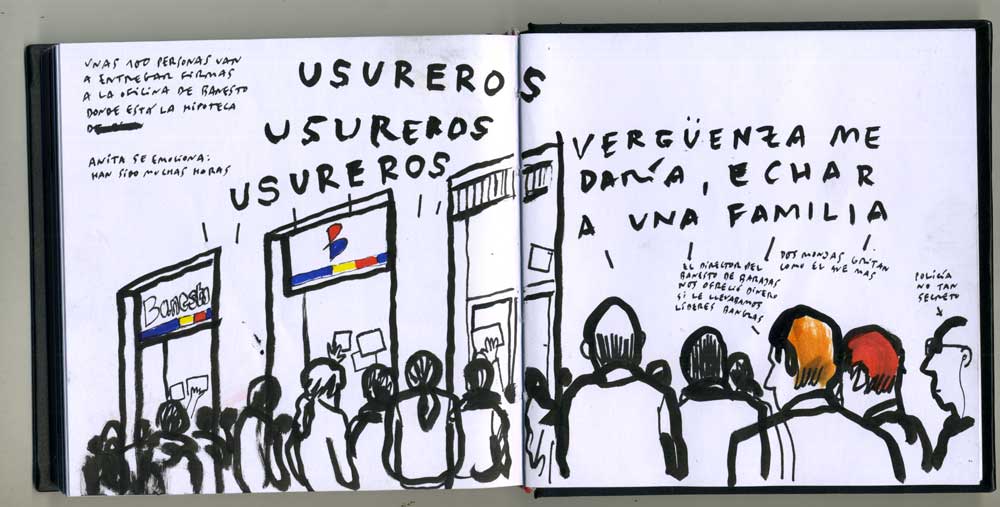 UNAS 100 PERSONAS VAN
A ENTREGAR FIRMAS
A LA OFICINA DE BANESTO
DONDE ESTÁ LA HIPOTECA
DE
ANITA SE EMOCIONA:
HAN SIDO MUCHAS HORAS
USUREROS
USUREROS
USUREROS
Banesto
B
VERGÜENZA ME
DARÍA, ECHAR
A UNA FAMILIA
EL DIRECTOR DEL
BANESTO DE BARAJAS
NOS OFRECIÓ DINERO
SI LE LLEVABAMOS
LÍDERES BANGLAS
DOS MONJAS GRITAN
COMO EL QUE MAS
POLICÍA
NO TAN
SECRETO